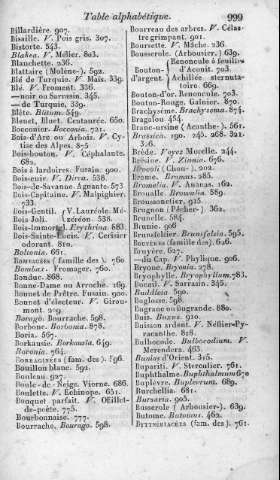 Table alphabétique. 999
Billardière. 907.
Bisaille. V. Pois gris. 307.
Bistorte. 543.
Blakea. V. Mélier. 803.
Blanchette. 236.
Blattaire (Molène-). 592.
Blé de Turquie. V. Maïs. 339.
Blé. V. Froment. 336.
— noir ou Sarrasin. 345.
— de Turquie. 339.
Blète. Blitum. 549.
Bleuet, Bluet. Centaurée. 650.
Bocconier. Bocconia. 721.
Bois-d'Arc ou Arbois. V. Cytise
des Alpes. 875
Boisbouton. V. Céphalante.
682.
Bois à lardoires. Fusain. 900.
Bois-cuir. V. Dirca. 538.
Bois-de-Savanne Agnante. 573
Bois-Capitaine. V. Malpighier.
733.
Bois-Gentil. V. Lauréole. Mézéréon.
538.
Bois-Joli.
Bois-Immortel. Erythrina. 883.
Bois-Sainte-Lucie. V. Cerisier
odorant. 810.
Boltonie. 661.
Bombacées (famille des). 760
Bombax. Fromager. 760.
Bonduc. 868.
Bonne-Dame ou Arroche. 169.
Bonnet de Prêtre. Fusain. 900.
Bonnet d'électeur. V. Giroumont.
209.
Borago. Bourrache. 598.
Borbone. Borbonia. 878.
Boria. 567.
Borkausie. Borkausia. 649.
Boronia. 764.
Borraginées (fam. des). 596.
Bouillon blanc. 592.
Bouleau. 927.
Boule-de-Neige. Viorne. 686.
Boulette. V. Echinope. 651.
Bouquet parfait. V. Œillet-de-poète.
775.
Bourbonnaise. 777.
Bourrache. Borago. 598.
Bourreau des arbres. V. Célastre
grimpant. 901.
Boursette. V. Mâche. 236.
Bousserole. (Arbousier.) 639.
Bouton-d'argent. Renoncule à feuilles
d'Aconit. 703.
Achillée sternutatoire.
669.
Bouton-d'or. Renoncule. 703.
Bouton-Rouge. Galnier. 870.
Brachysème. Brachysema. 874.
Bragalou. 454.
Branc-ursine (Acanthe-). 561.
Brède. Voyez Morelle. 244.
Brésine. V. Zinnia. 676.
Brocoli (Chou-). 202.
Brome. Bromus. 285.
Bromelia. V. Ananas. 162.
Brouale. Brouallia. 589.
Broussonetie. 924.
Brugnon (Pêcher-) 362.
Brunelle. 584.
Brunie. 906
Brunsfelsier. Brunsfelsia. 595.
Bruyères (famille des). 626.
Bruyère. 627.
— du Cap. V. Phylique. 906.
Bryone. Bryonia. 278.
Bryophylle. Bryophyllum. 783.
Buddleia. 590.
Buglosse. 598.
Bugrane ou ougrande. 880.
Buis. Buxus. 910.
Buisson ardent. V. Néflier-Pyracanthe.
818.
Bulbocode. Bulbocodium. V.
Merendera. 463.
Bunias d'Orient. 315.
Bupariti. V. Stercullier. 761.
Buphthalme. Buphthalmum 670
Buplèvre. Bupleverum. 689.
Burchellie. 681.
Bursaria. 905.
Busserole (Arbousier-). 639.
Butome. Butomus. 462.
Byttnériacées (fam. des). 761.